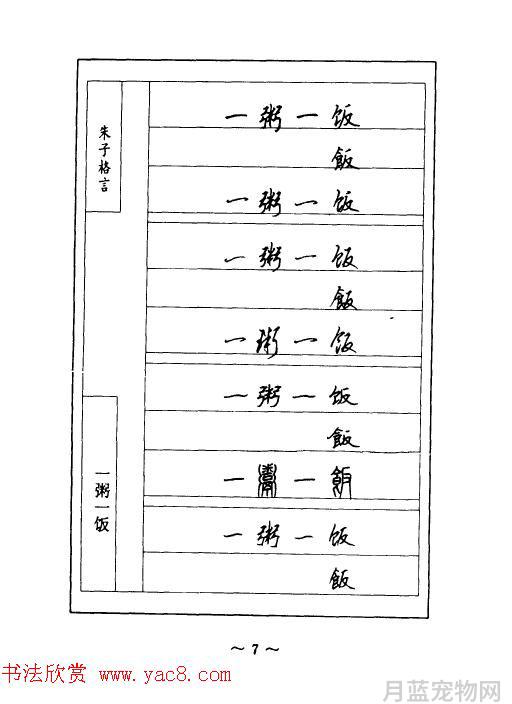 朱子格言
一粥一饭
一粥一饭
飯
一粥一饭
一粥一饭
飯
一粥一饭
一粥一饭
飯
一鬻一飯
一粥一饭
飯
～7～
书法欣赏 www.yac8.com
月蓝宠物网